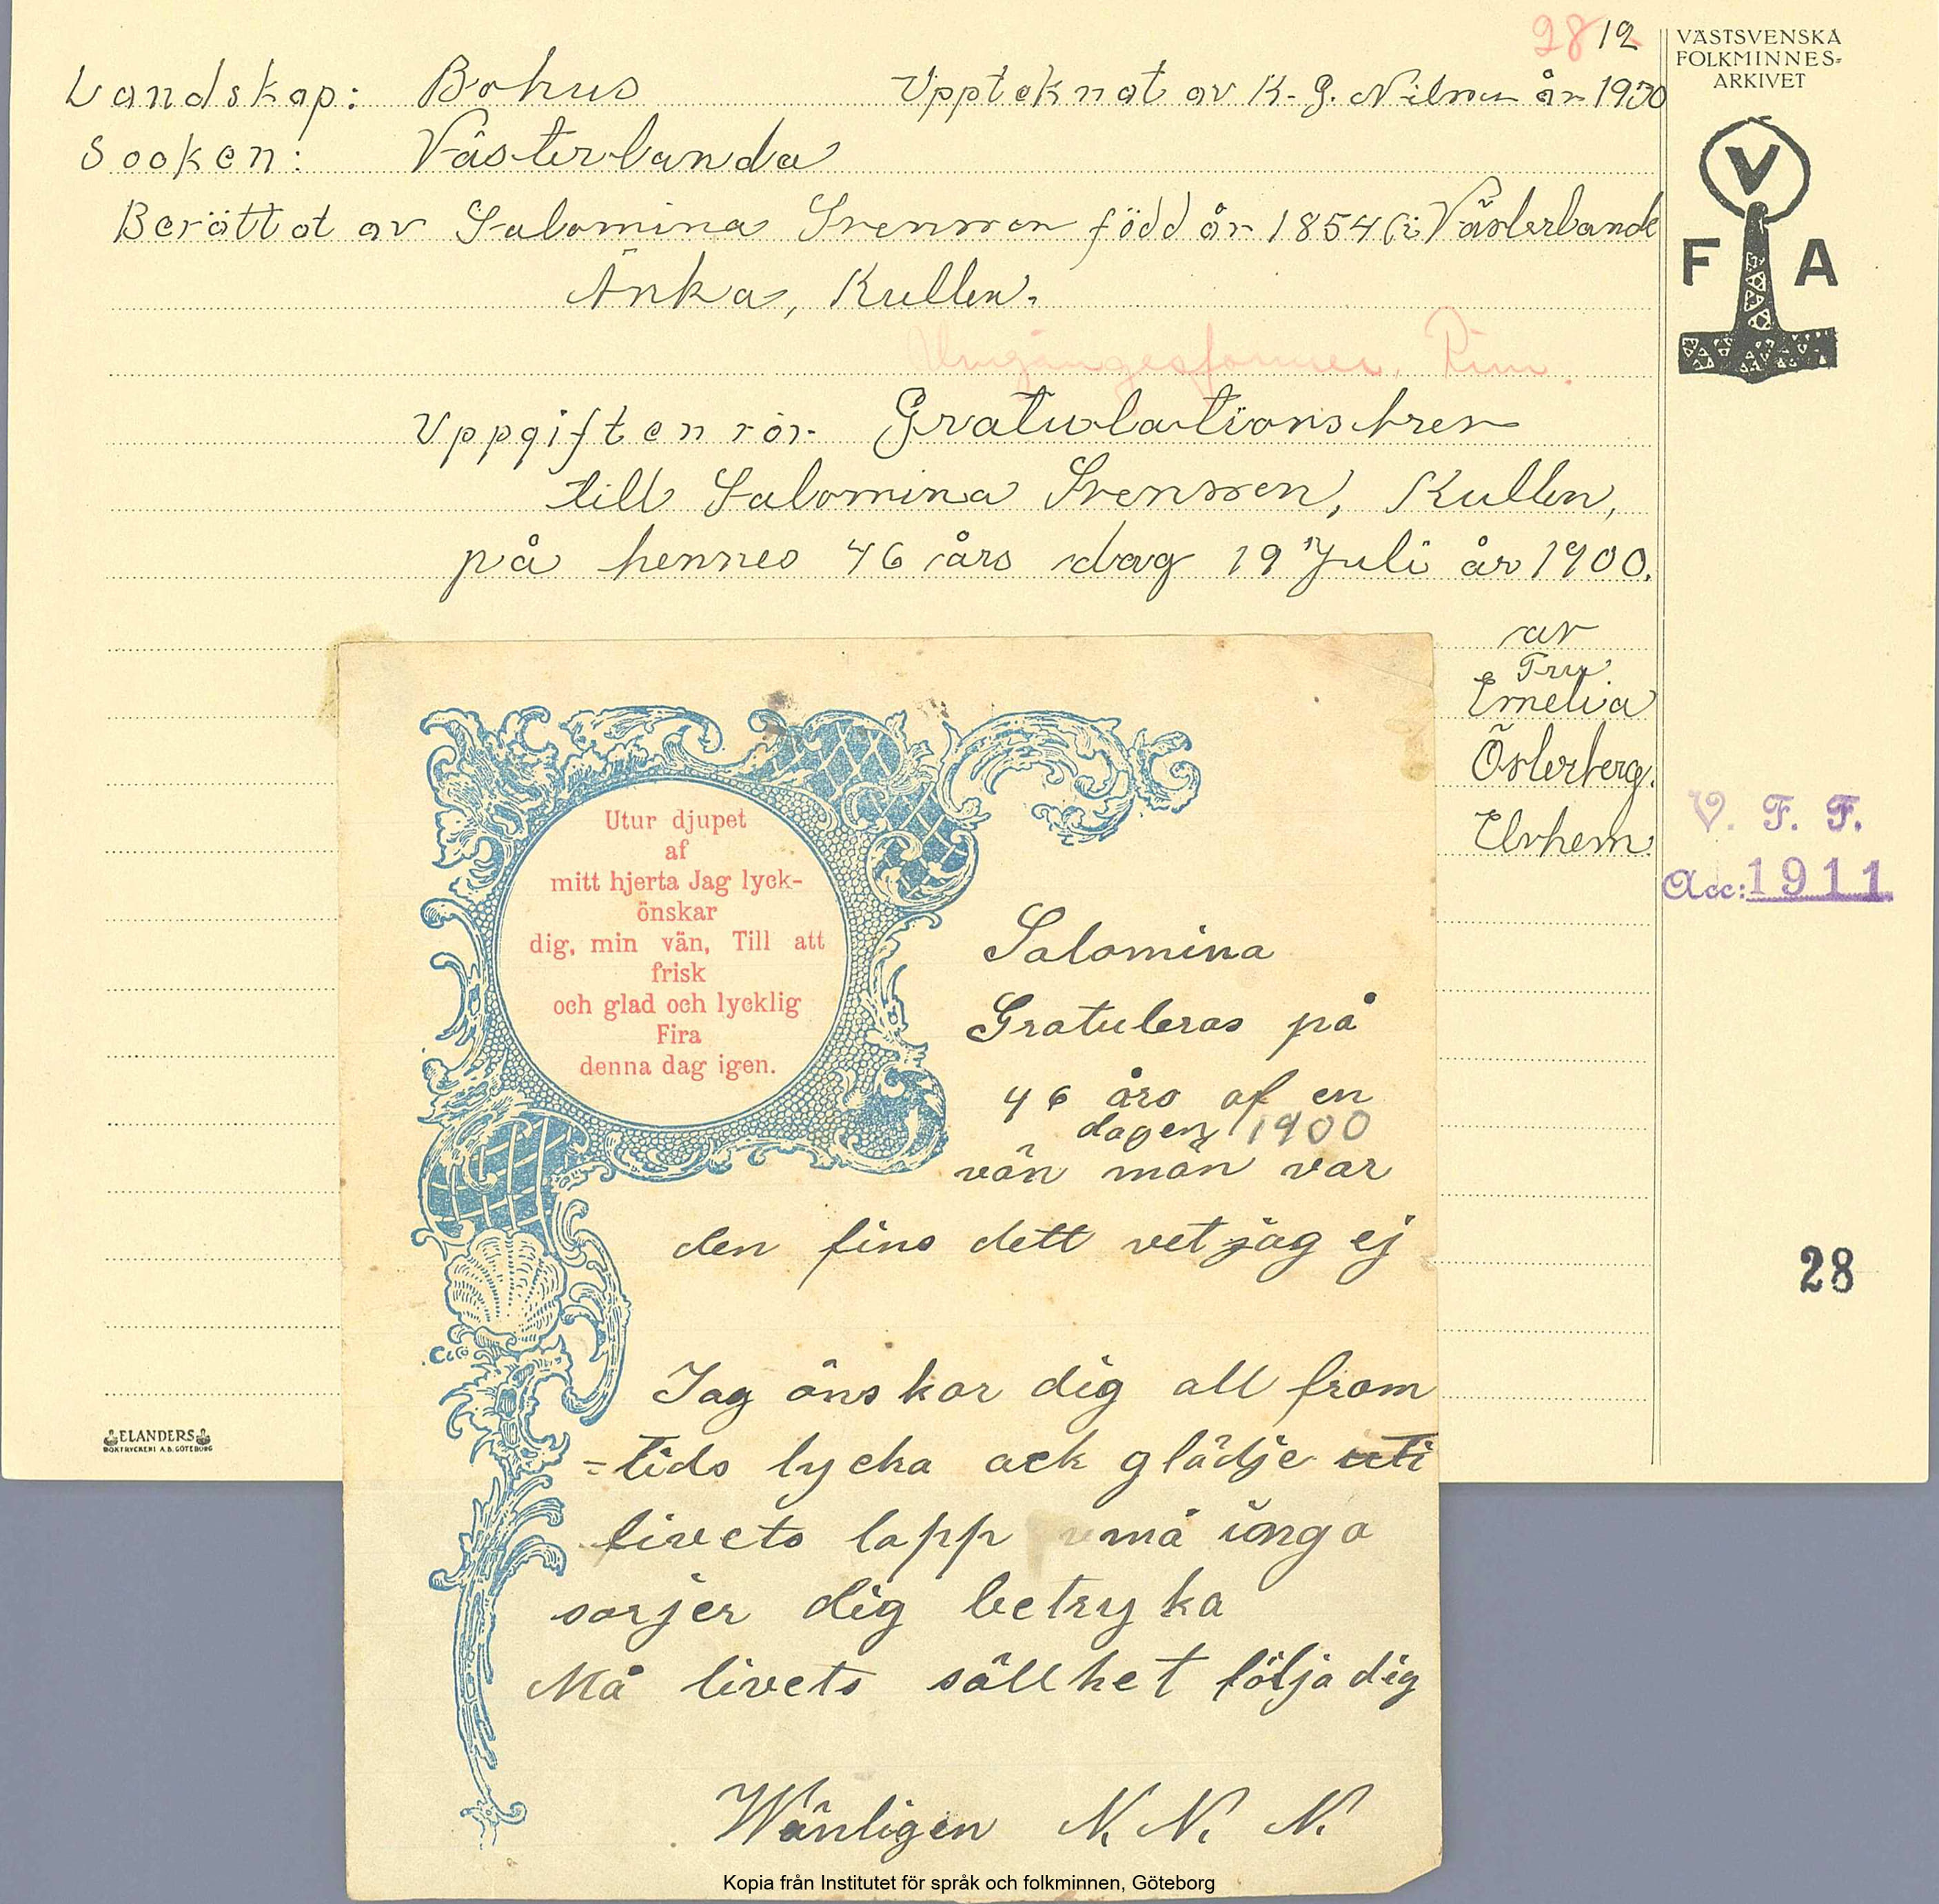 28 12
VÄSTSVENSKA
FOLKMINNES-
ARKIVET
Landskap: Bohus Upptecknat av K. G. Nilson år 1930
Socken: Västerlanda
Berättat av Salomina Svensson född år 1854 i Västerlanda
Änka, Kullen.
V
F A
Umgängesformer. Rim.
Uppgiften rör Gratulationsbrev
till Salomina Svensson, Kullen,
på hennes 46 års dag 19 Juli år 1900.
av
Fru
Emelia
Österberg.
Elvhem.
V. F. F.
Acc: 1911
28
Utur djupet
af
mitt hjerta Jag lyck-
önskar
dig, min vän, Till att
frisk
och glad och lycklig
Fira
denna dag igen.
Salomina
Gratuleras på
46 års af en
dagen 1900
vän män var
den fins dett vet jag ej
Jag önskar dig all fram
=tids lycka ack glädje uti
livets lopp må inga
sorjer dig betryka
Må livets sällhet följa dig
Wänligen N. N. N.
ELANDERS
BOKTRYCKERI A.B. GÖTEBORG
Kopia från Institutet för språk och folkminnen, Göteborg